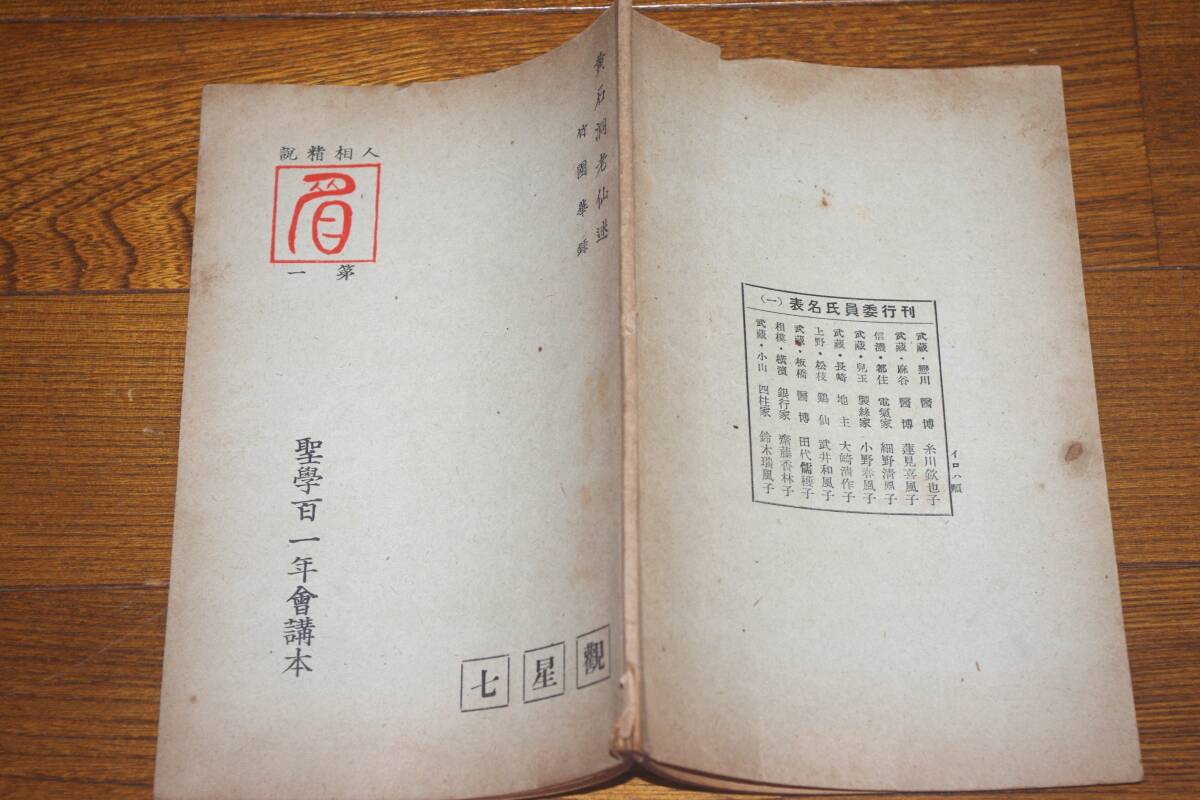 黃石洞老仙述
人相精說
眉
第一
聖學百一年會講本
七星觀
刊行委員氏名表(一)
イロハ順
武藏・戀川 醫博 糸川欽也子
武藏・麻谷 醫博 蓮見喜風子
信濃・都住 電氣家 細野清風子
武藏・兒玉 製絲家 小野春風子
武藏・長崎 地主 大崎清作子
上野・松枝 鶏仙 武井和風子
武藏・板橋 醫博 田代
相模・橫濱 銀行家 齋藤香林子
武藏・小山 四柱家 鈴木瑞風子